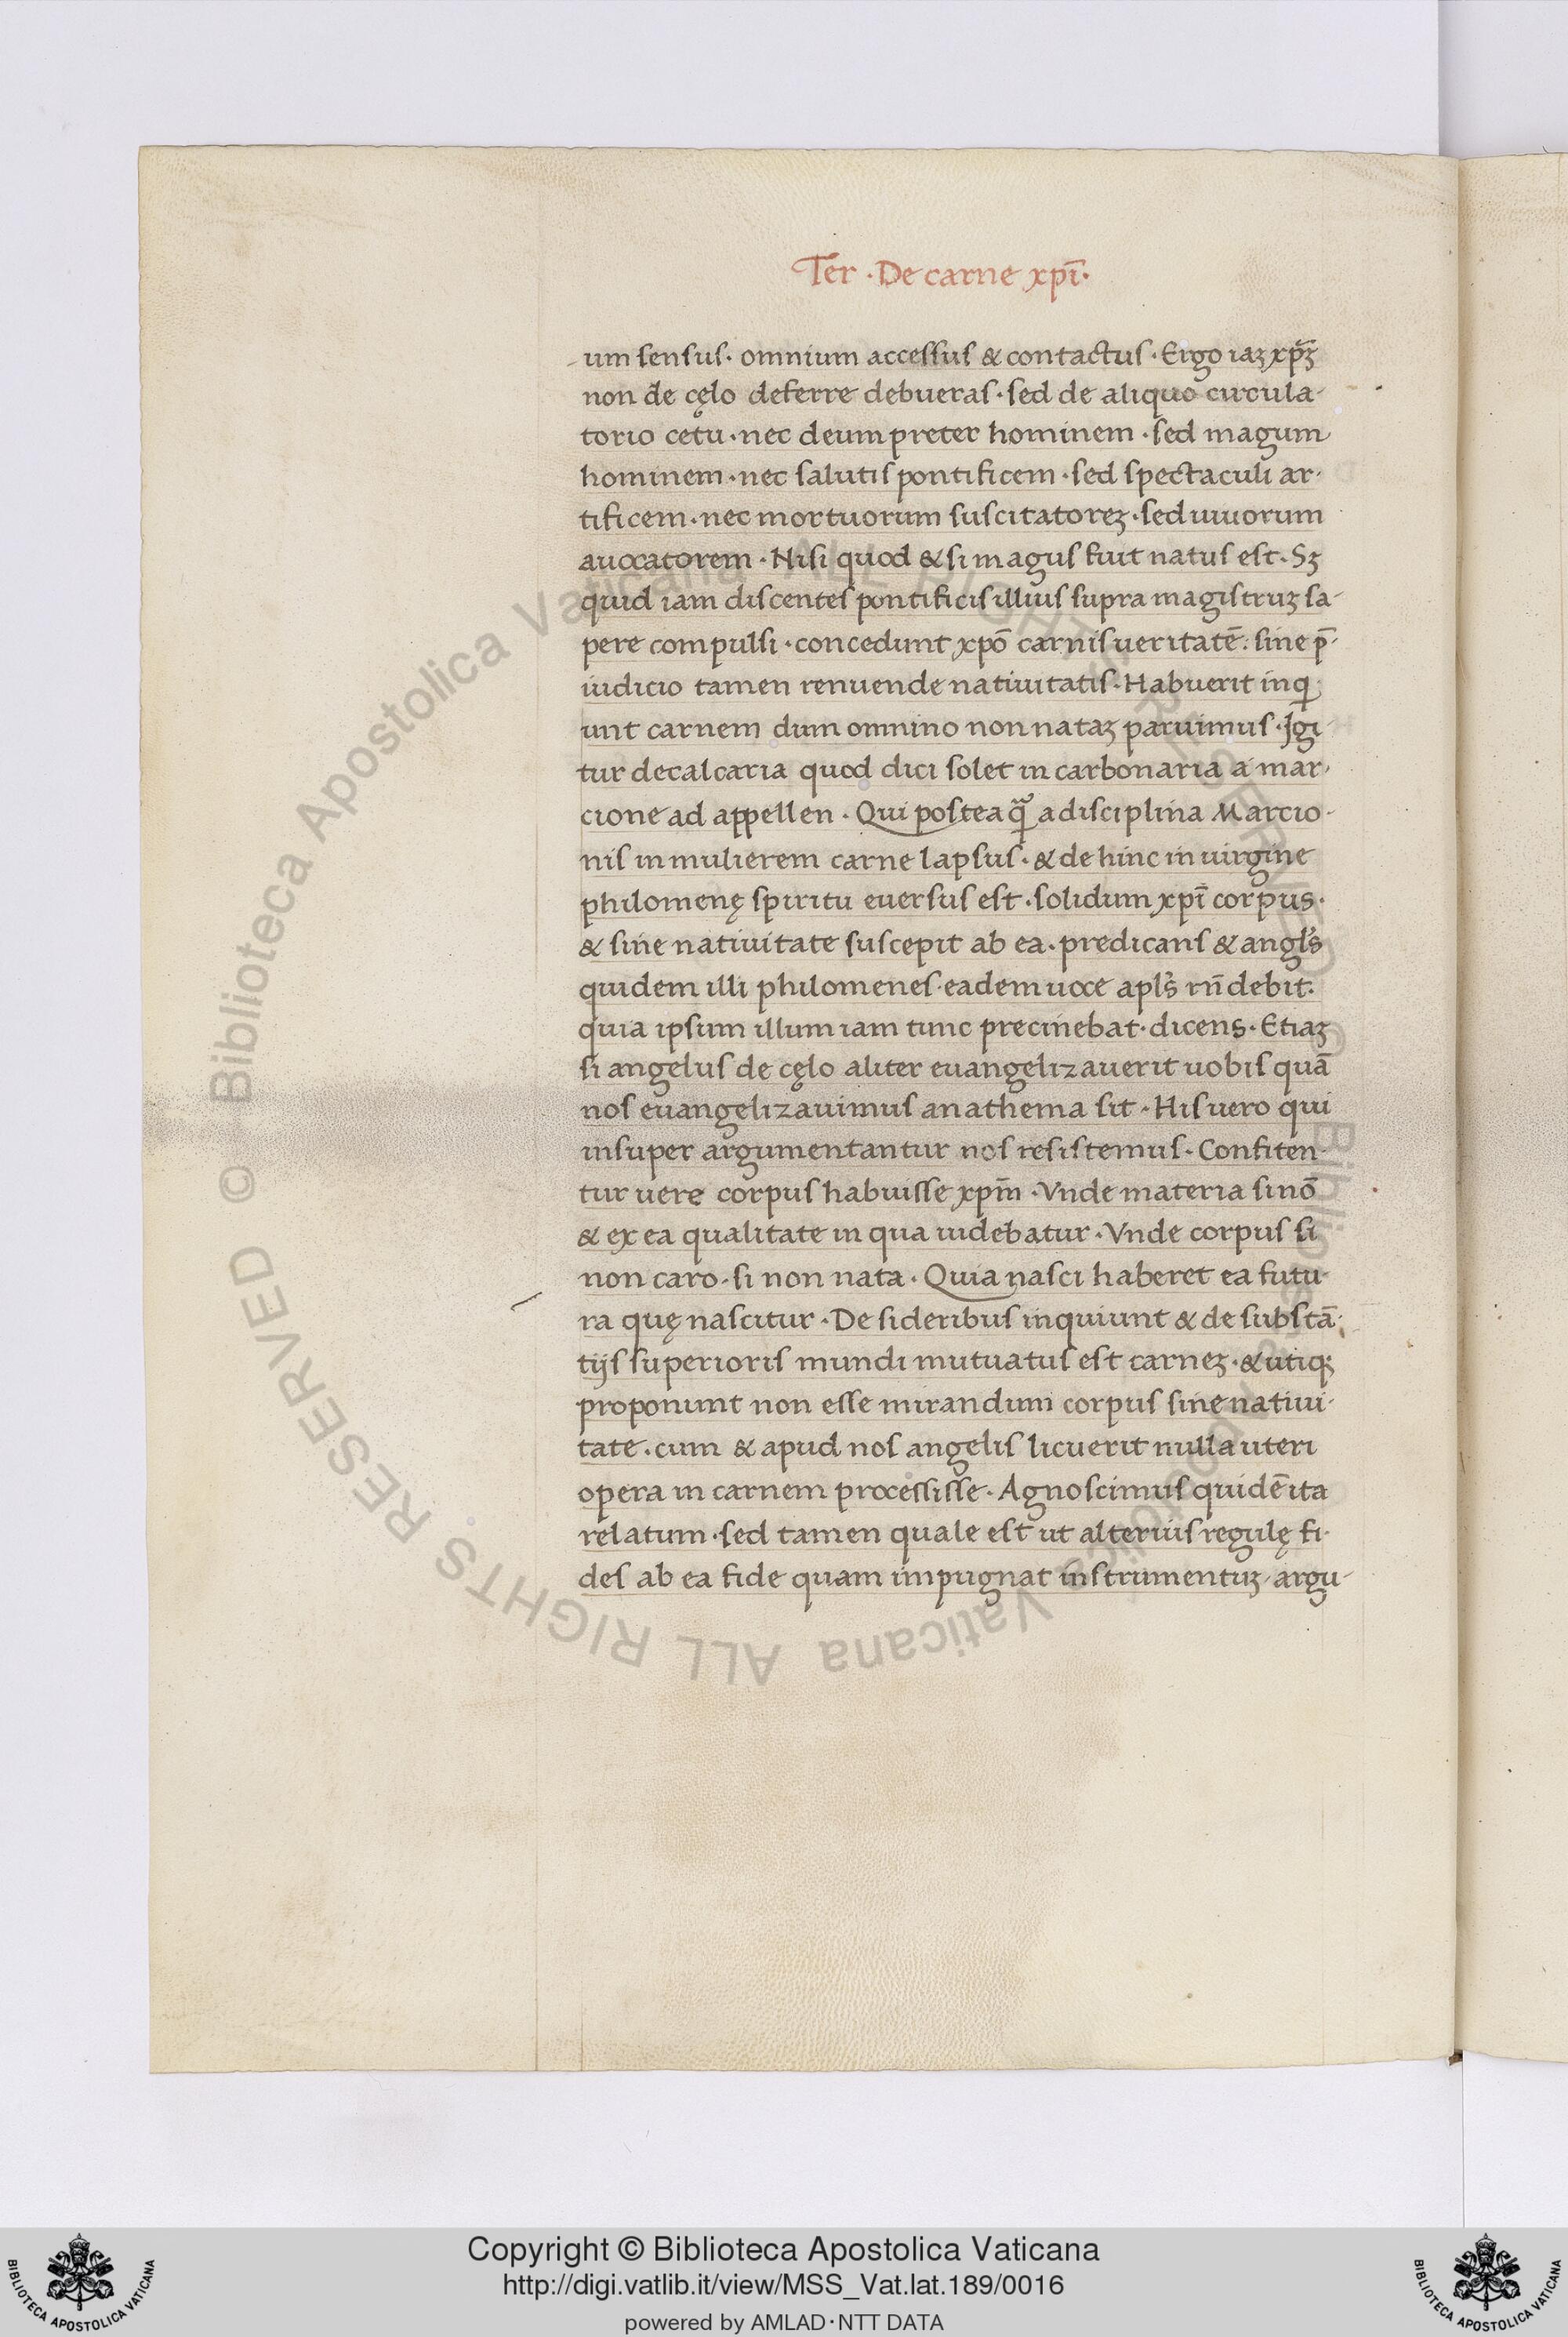 Ter · De carne xpī·
um sensus· omnium accessus & contactus · Ergo iaꝫ xp̄ꝫ
non de cęlo deferre debueras · sed de aliquo circula-
torio cetu · nec deum preter hominem · sed magum
hominem · nec salutis pontificem · sed spectaculi ar-
tificem · nec mortuorum suscitatoreꝫ · sed uiuorum
auocatorem · Nisi quod & si magus fuit natus est · Sꝫ
quid iam discentes pontificis illius supra magistruꝫ sa-
pere compulsi · concedunt xpō carnis ueritatē · sine p̄-
iudicio tamen renuende natiuitatis · Habuerit inq-
unt carnem dum omnino non nataꝫ paruimus · Igi-
tur decalcaria quod dici solet in carbonaria a mar-
cione ad appellen · Qui postea qͣ a disciplina Marcio-
nis in mulierem carne lapsus · & de hinc in uirgine
philomenę spiritu euersus est · solidum xpī corpus ·
& sine natiuitate suscepit ab ea · predicans & angls̄
quidem illi philomenes · eadem uoce apls̄ rn̄debit ·
quia ipsum illum iam tunc precinebat · dicens · Etiaꝫ
si angelus de cęlo aliter euangelizauerit uobis quā
nos euangelizauimus anathema sit · His uero qui
insuper argumentantur nos resistemus · Confiten-
tur uere corpus habuisse xpm̄ · Vnde materia si nō
& ex ea qualitate in qua uidebatur · Vnde corpus si
non caro · si non nata · Quia nasci haberet ea futu-
ra quę nascitur · De sideribus inquiunt & de substā-
tijs superioris mundi mutuatus est carneꝫ · & utiqꝫ
proponunt non esse mirandum corpus sine natiui-
tate · cum & apud nos angelis licuerit nulla uteri
opera in carnem processisse · Agnoscimus quidē ita
relatum · sed tamen quale est ut alterius regulę fi-
des ab ea fide quam impugnat instrumentuꝫ · argu-
© Biblioteca Apostolica Vaticana ALL RIGHTS RESERVED © Biblioteca Apostolica Vaticana ALL RIGHTS RESERVED
Copyright © Biblioteca Apostolica Vaticana
http://digi.vatlib.it/view/MSS_Vat.lat.189/0016
powered by AMLAD·NTT DATA
BIBLIOTECA APOSTOLICA VATICANA
BIBLIOTECA APOSTOLICA VATICANA